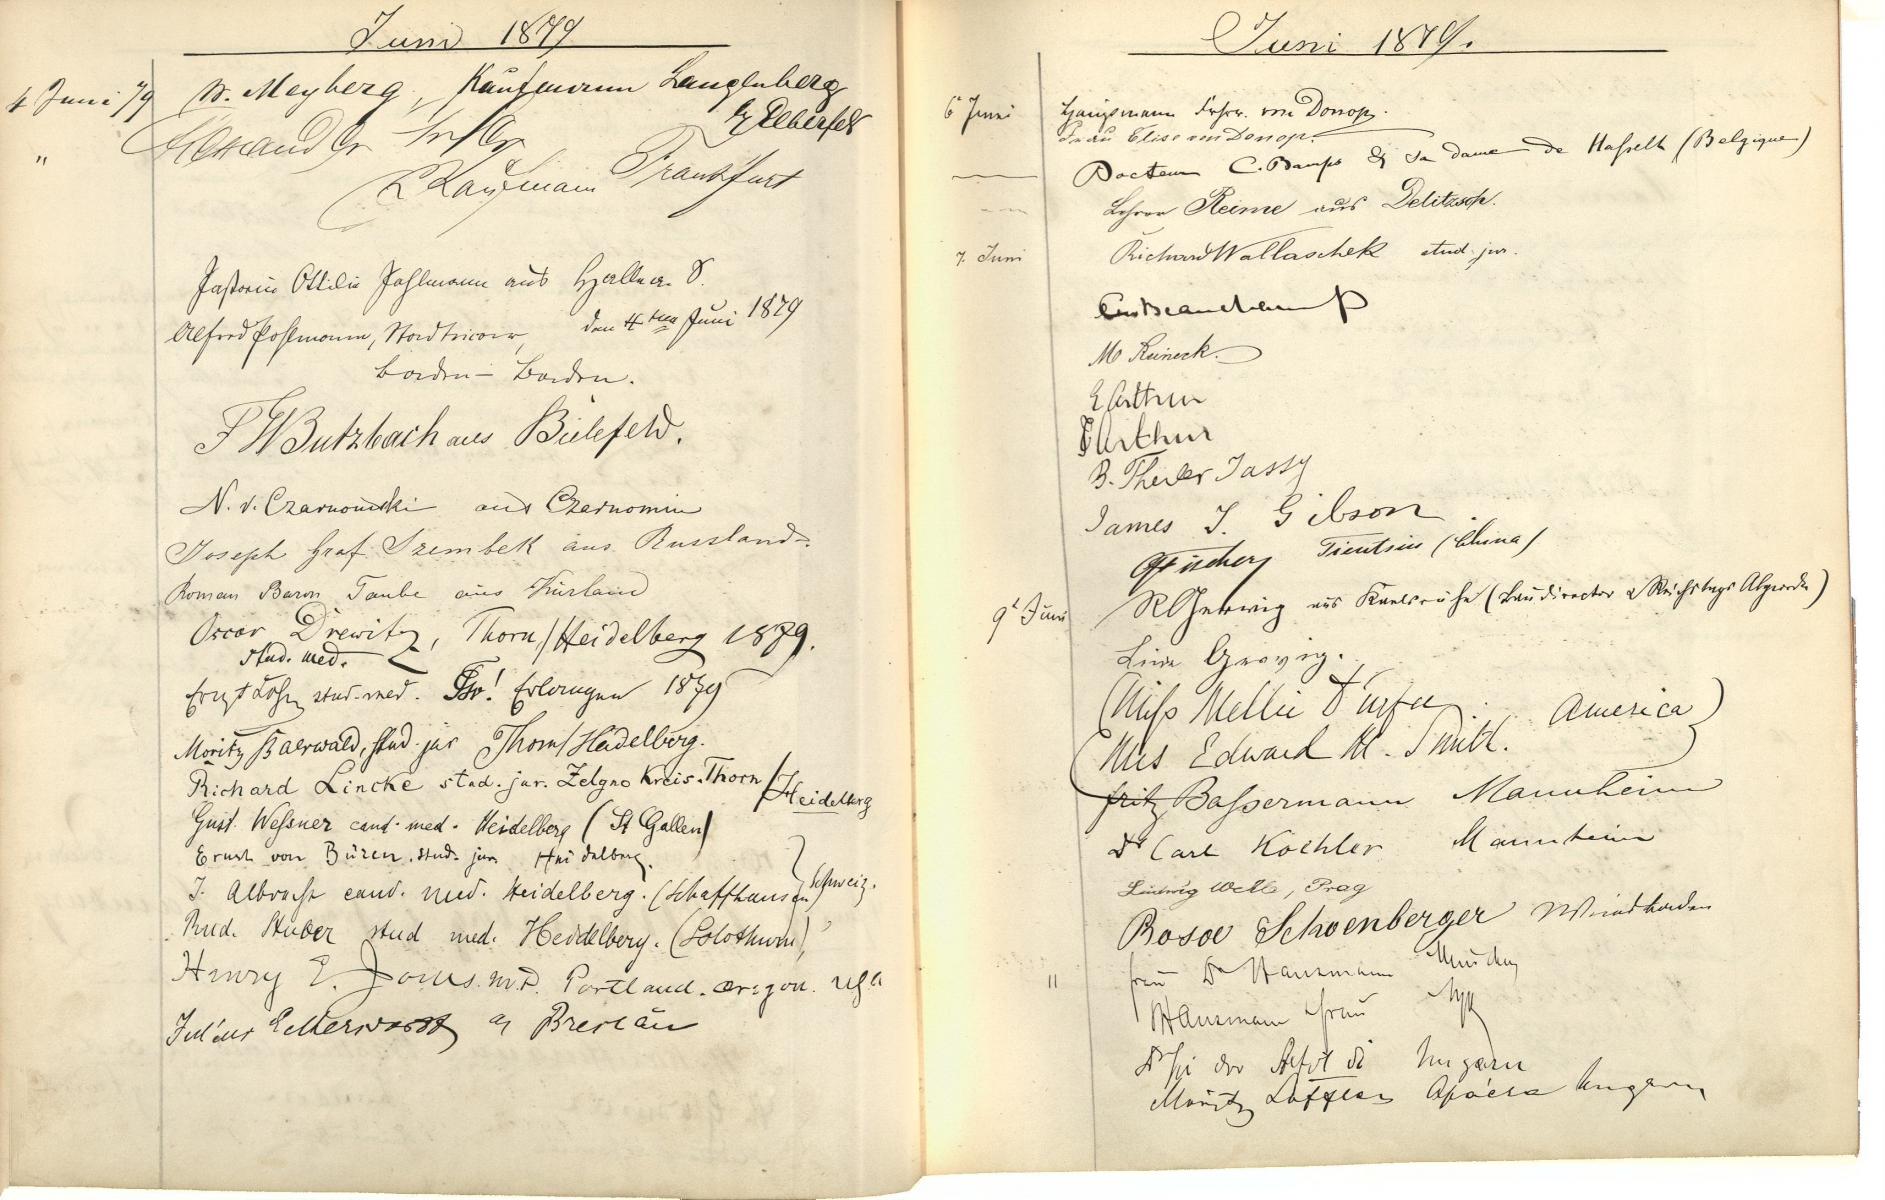 Juni 1879
4 Juni 79 W. Meyberg, Kaufmann Langenberg
b/ Elberfeld
" Alexander
L Kaufmann Frankfurt
Pastorin Ottilie Pohlmann aus Halle a. S.
Alfred Pohlmann, den 4ten Juni 1879
Baden-Baden.
F W Butzbach aus Bielefeld.
N. v. Czarnomski aus Czernomin
Joseph Graf Szembek aus Russland.
Roman Baron Taube aus Kurland
Oscar Drewitz, Thorn/Heidelberg 1879.
stud. med.
Ernst stud. med. Erlangen 1879
Moritz Baerwald, stud. jur Thorn/Heidelberg.
Richard Lincke stud. jur. Zelgno Kreis Thorn/Heidelberg
Gust. Wessner cand. med. Heidelberg (St Gallen)
Ernst von Büren stud. jur. Heidelberg.
J. Albrecht cand. med. Heidelberg. (Schaffhausen) Schweiz.
Rud. Stuber stud med. Heidelberg. (Solothurn)
Henry E. Jones. M.D. Portland. Oregon. USA
Julius Eckerwardt a/ Breslau
Juni 1879.
6t Juni Hauptmann Frhr. von Donop.
Frau Elise von Donop.
Docteur C. Bamps & sa dame de Hasselt (Belgique)
Lehrer Reime aus Delitzsch.
7. Juni Richard Wallaschek stud. jur.
Beauchamp
M Reineck.
E Arthur
E Arthur
B. Theiler Jassy
James J. Gibson
Fischer Tientsin (China)
9t Juni R Gerwig aus Karlsruhe (Baudirector & Reichstags Abgeordn)
Line Gerwig.
(Miss Nellie America)
(Mrs Edward M. Smith.
Fritz Bassermann Mannheim
Dr Carl Koehler Mannheim
Ludwig Prag
Rosa Schoenberger
" Frau Dr Hausmann München
Hausmann Frau
Ungarn
Moritz Löffler Apácza Ungarn